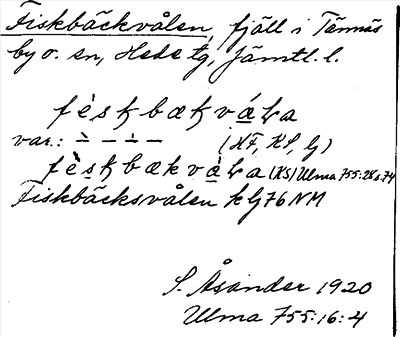 Fiskbäckvålen, fjäll i Tännäs
by o. sn, Hede tg, Jämtl. l.
var.: (HF, KS, G)
(KS) Ulma 755:28 s. 74
Fiskbäcksvålen k G 76 NM
S. Åsander 1920
Ulma 755:16:4